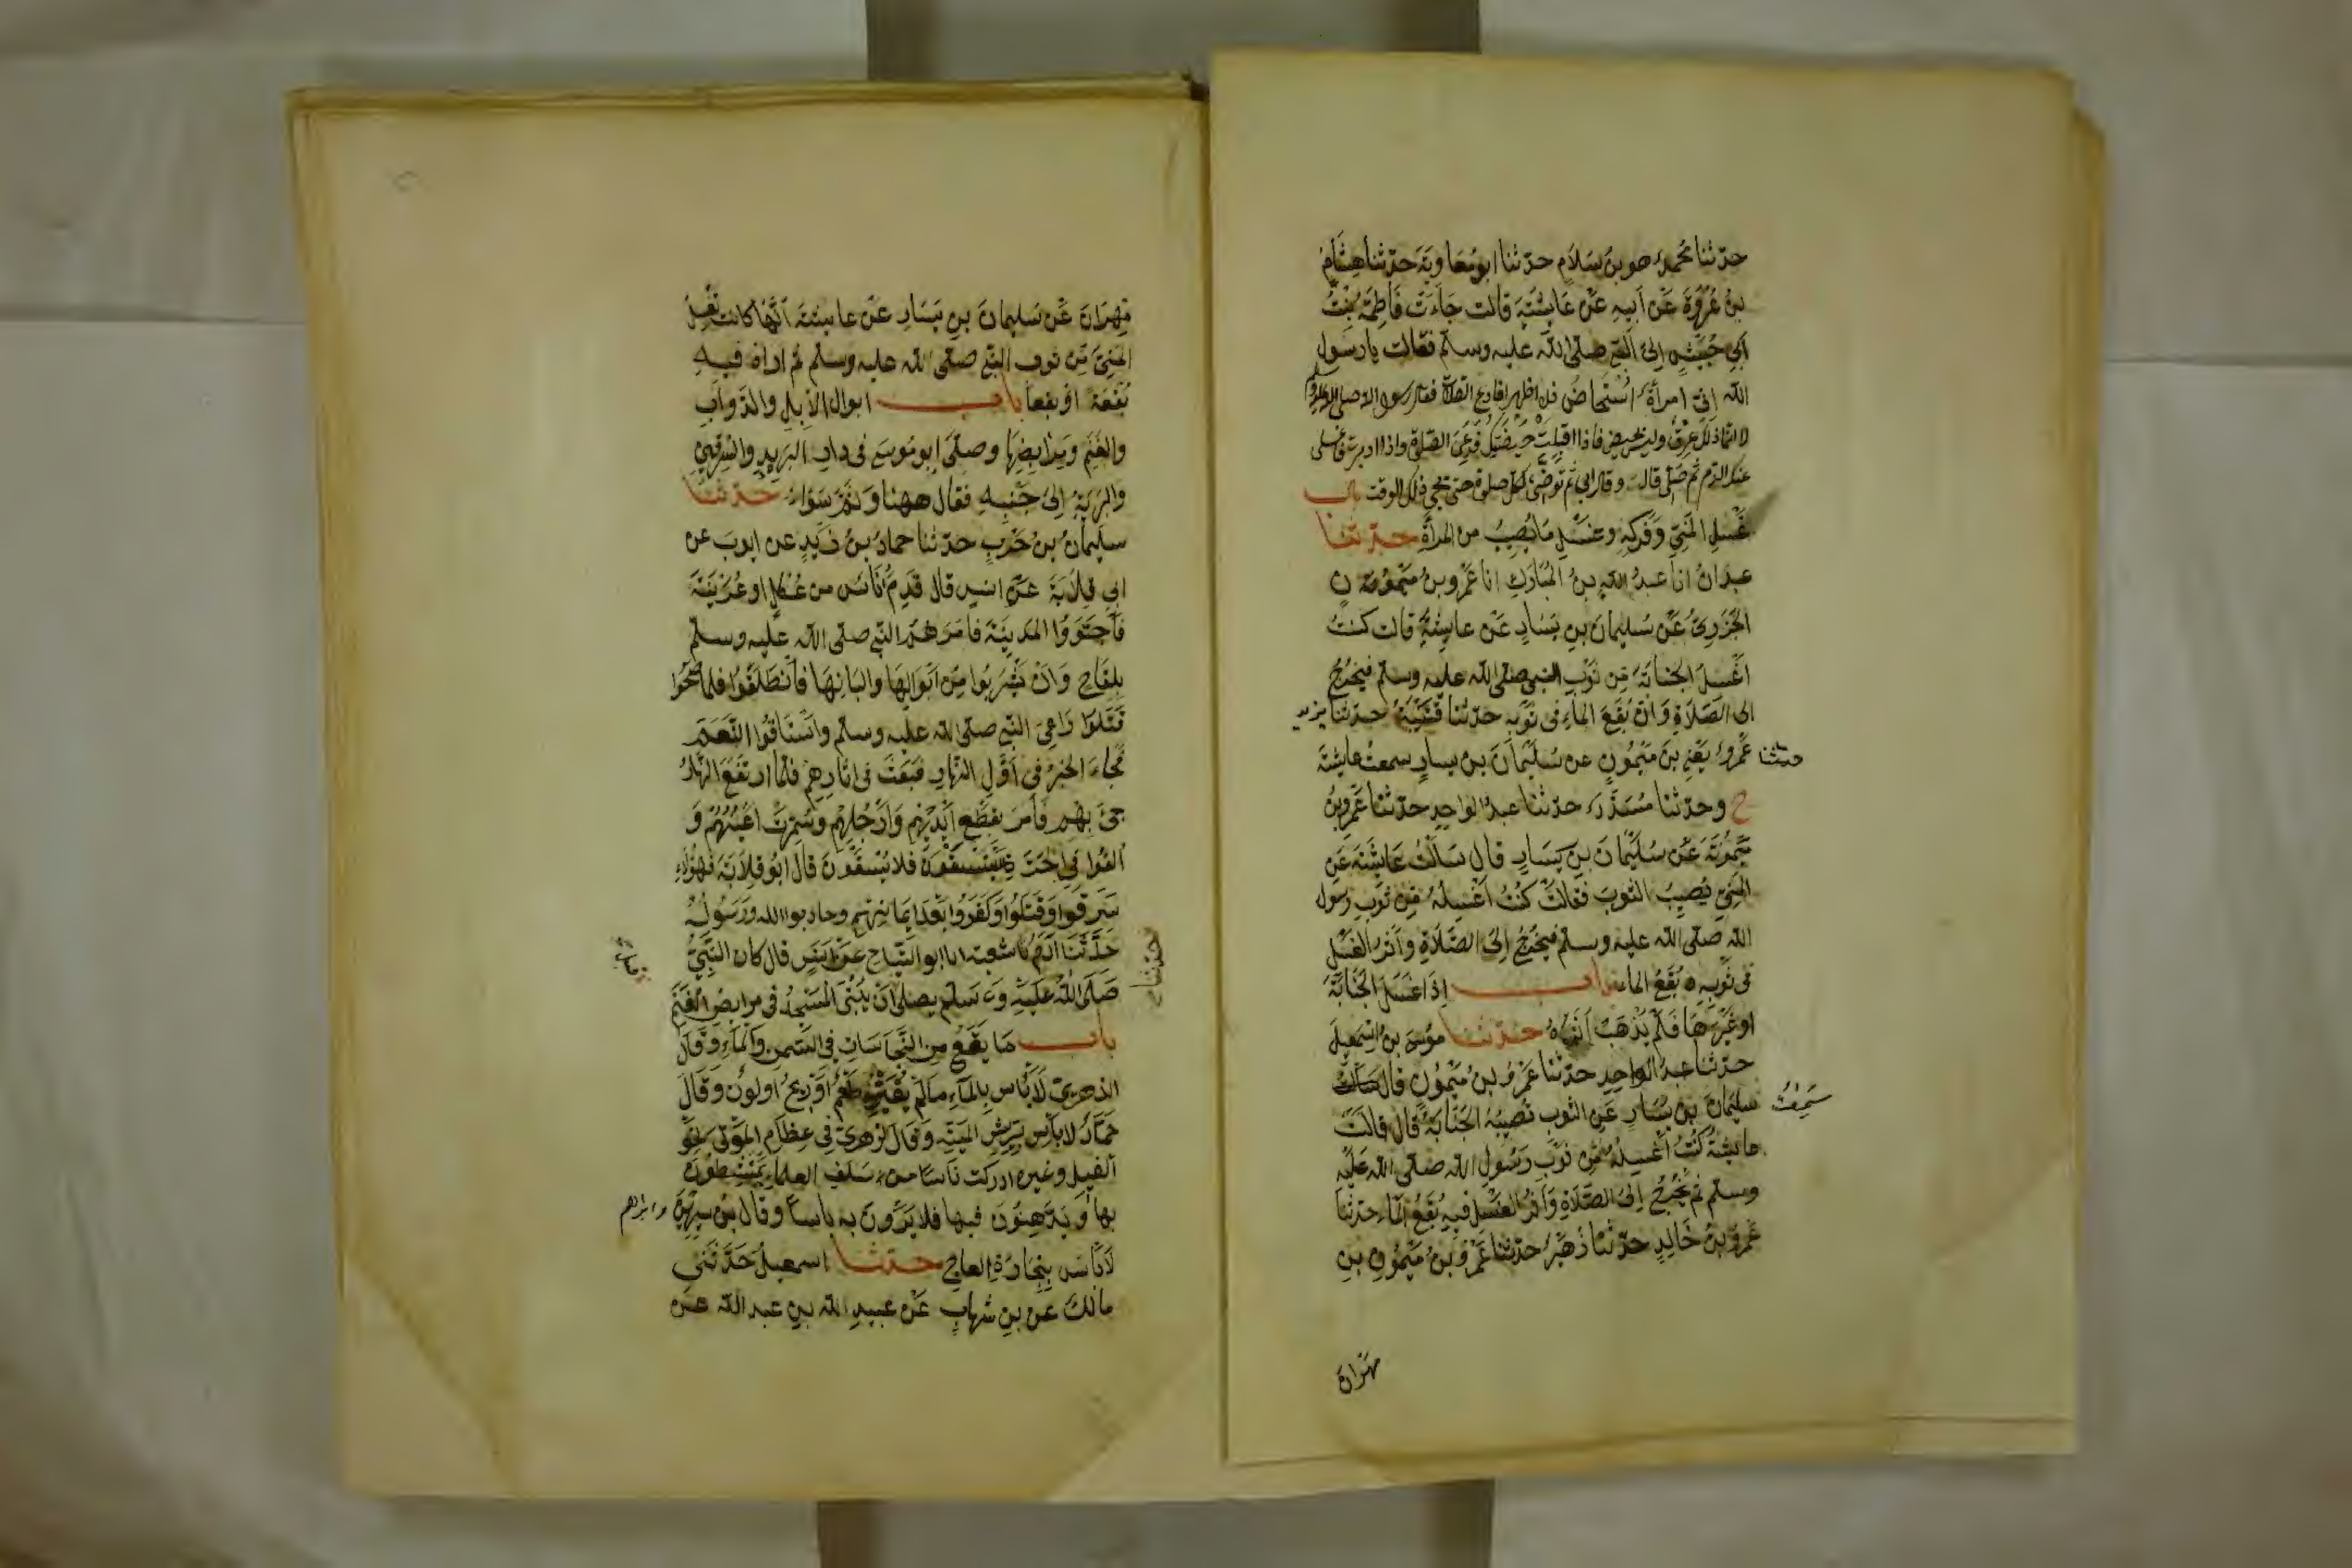 حدثنا محمد هو بن سلام حدثنا ابو معاوية حدثنا هشام
بن عروة عن ابيه عن عايشة قالت جاءت فاطمة بنت
ابي حبيش الى النبي صلى الله عليه وسلم فقالت يا رسول
الله اني امرأة استحاض فلا اطهر افادع الصلاة فقال رسول الله صلى الله عليه وسلم
لا انما ذلك عرق وليس بحيض فاذا اقبلت حيضتك فدعي الصلوة واذا ادبرت فاغسلى
عنك الدم ثم صلى قال وقال ابي ثم توضئ لكل صلوة حتى يجي ذلك الوقت باب
غسل المني وفركه وغسل ما يصيب من المرأة حدثنا
عبدان انا عبد الله بن المبارك انا عمرو بن ميمون
الجزري عن سليمان بن يسار عن عايشة قالت كنت
اغسل الجنابة من ثوب النبي صلى الله عليه وسلم فيخرج
الى الصلاة وان بقع الماء في ثوبه حدثنا قتيبة حدثنا يزيد
حدثنا عمرو يعني بن ميمون عن سليمان بن يسار سمعت عايشة
ح وحدثنا مسدد حدثنا عبد الواحد حدثنا عمرو بن
ميمونة عن سليمان بن يسار قال سالت عايشة عن
المني يصيب الثوب فقالت كنت اغسله من ثوب رسول
الله صلى الله عليه وسلم فيخرج الى الصلاة واثر الغسل
في ثوبه بقع الماء باب اذا غسل الجنابة
او غيرها فلم يذهب اثره حدثنا موسى بن اسمعيل
حدثنا عبد الواحد حدثنا عمرو بن ميمون قال
سمعت سليمان بن يسار عن الثوب تصيبه الجنابة قال قالت
عايشة كنت اغسله من ثوب رسول الله صلى الله عليه
وسلم ثم يخرج الى الصلاة واثر الغسل فيه بقع الماء حدثنا
عمرو بن خالد حدثنا زهير حدثنا عمرو بن ميمون بن
مهران
مهران عن سليمان بن يسار عن عايشة انها كانت تغسل
المني من ثوب النبي صلى الله عليه وسلم ثم اراه فيه
بقعة او بقعا باب ابوال الابل والدواب
والغنم ومرابضها وصلى ابو موسى في دار البريد والسرقين
والبرية الى جنبه فقال ههنا وثم سواء حدثنا
سليمان بن حرب حدثنا حماد بن زيد عن ايوب عن
ابي قلابة عن انس قال قدم اناس من عكل او عرينة
فاجتووا المدينة فامرهم النبي صلى الله عليه وسلم
بلقاح وان يشربوا من ابوالها والبانها فانطلقوا فلما صحوا
قتلوا راعي النبي صلى الله عليه وسلم واستاقوا النعم
فجاء الخبر في اول النهار فبعث في اثارهم فلما ارتفع النهار
جئ بهم فامر بقطع ايديهم وارجلهم وسمرت اعينهم و
القوا في الحرة يستسقون فلا يسقون قال ابو قلابة فهؤلاء
سرقوا وقتلوا وكفروا بعد ايمانهم وحاربوا الله ورسوله
حدثنا ادم نا شعبة انا ابو التياح عن انس قال كان النبي
صلى الله عليه وسلم يصلى ان يبنى المسجد في مرابض الغنم
باب ما يقع من النجاسات في السمن والماء وقال
الزهري لا باس بالماء ما لم يغيره طعم او ريح او لون وقال
حماد لا باس بريش الميتة وقال الزهري في عظام الموتى نحو
الفيل وغيره ادركت ناسا من سلف العلماء يمتشطون
بها ويدهنون فيها فلا يرون به باسا وقال بن سيرين وابراهيم
لا باس بتجارة العاج حدثنا اسمعيل حدثني
مالك عن بن شهاب عن عبيد الله بن عبد الله عن